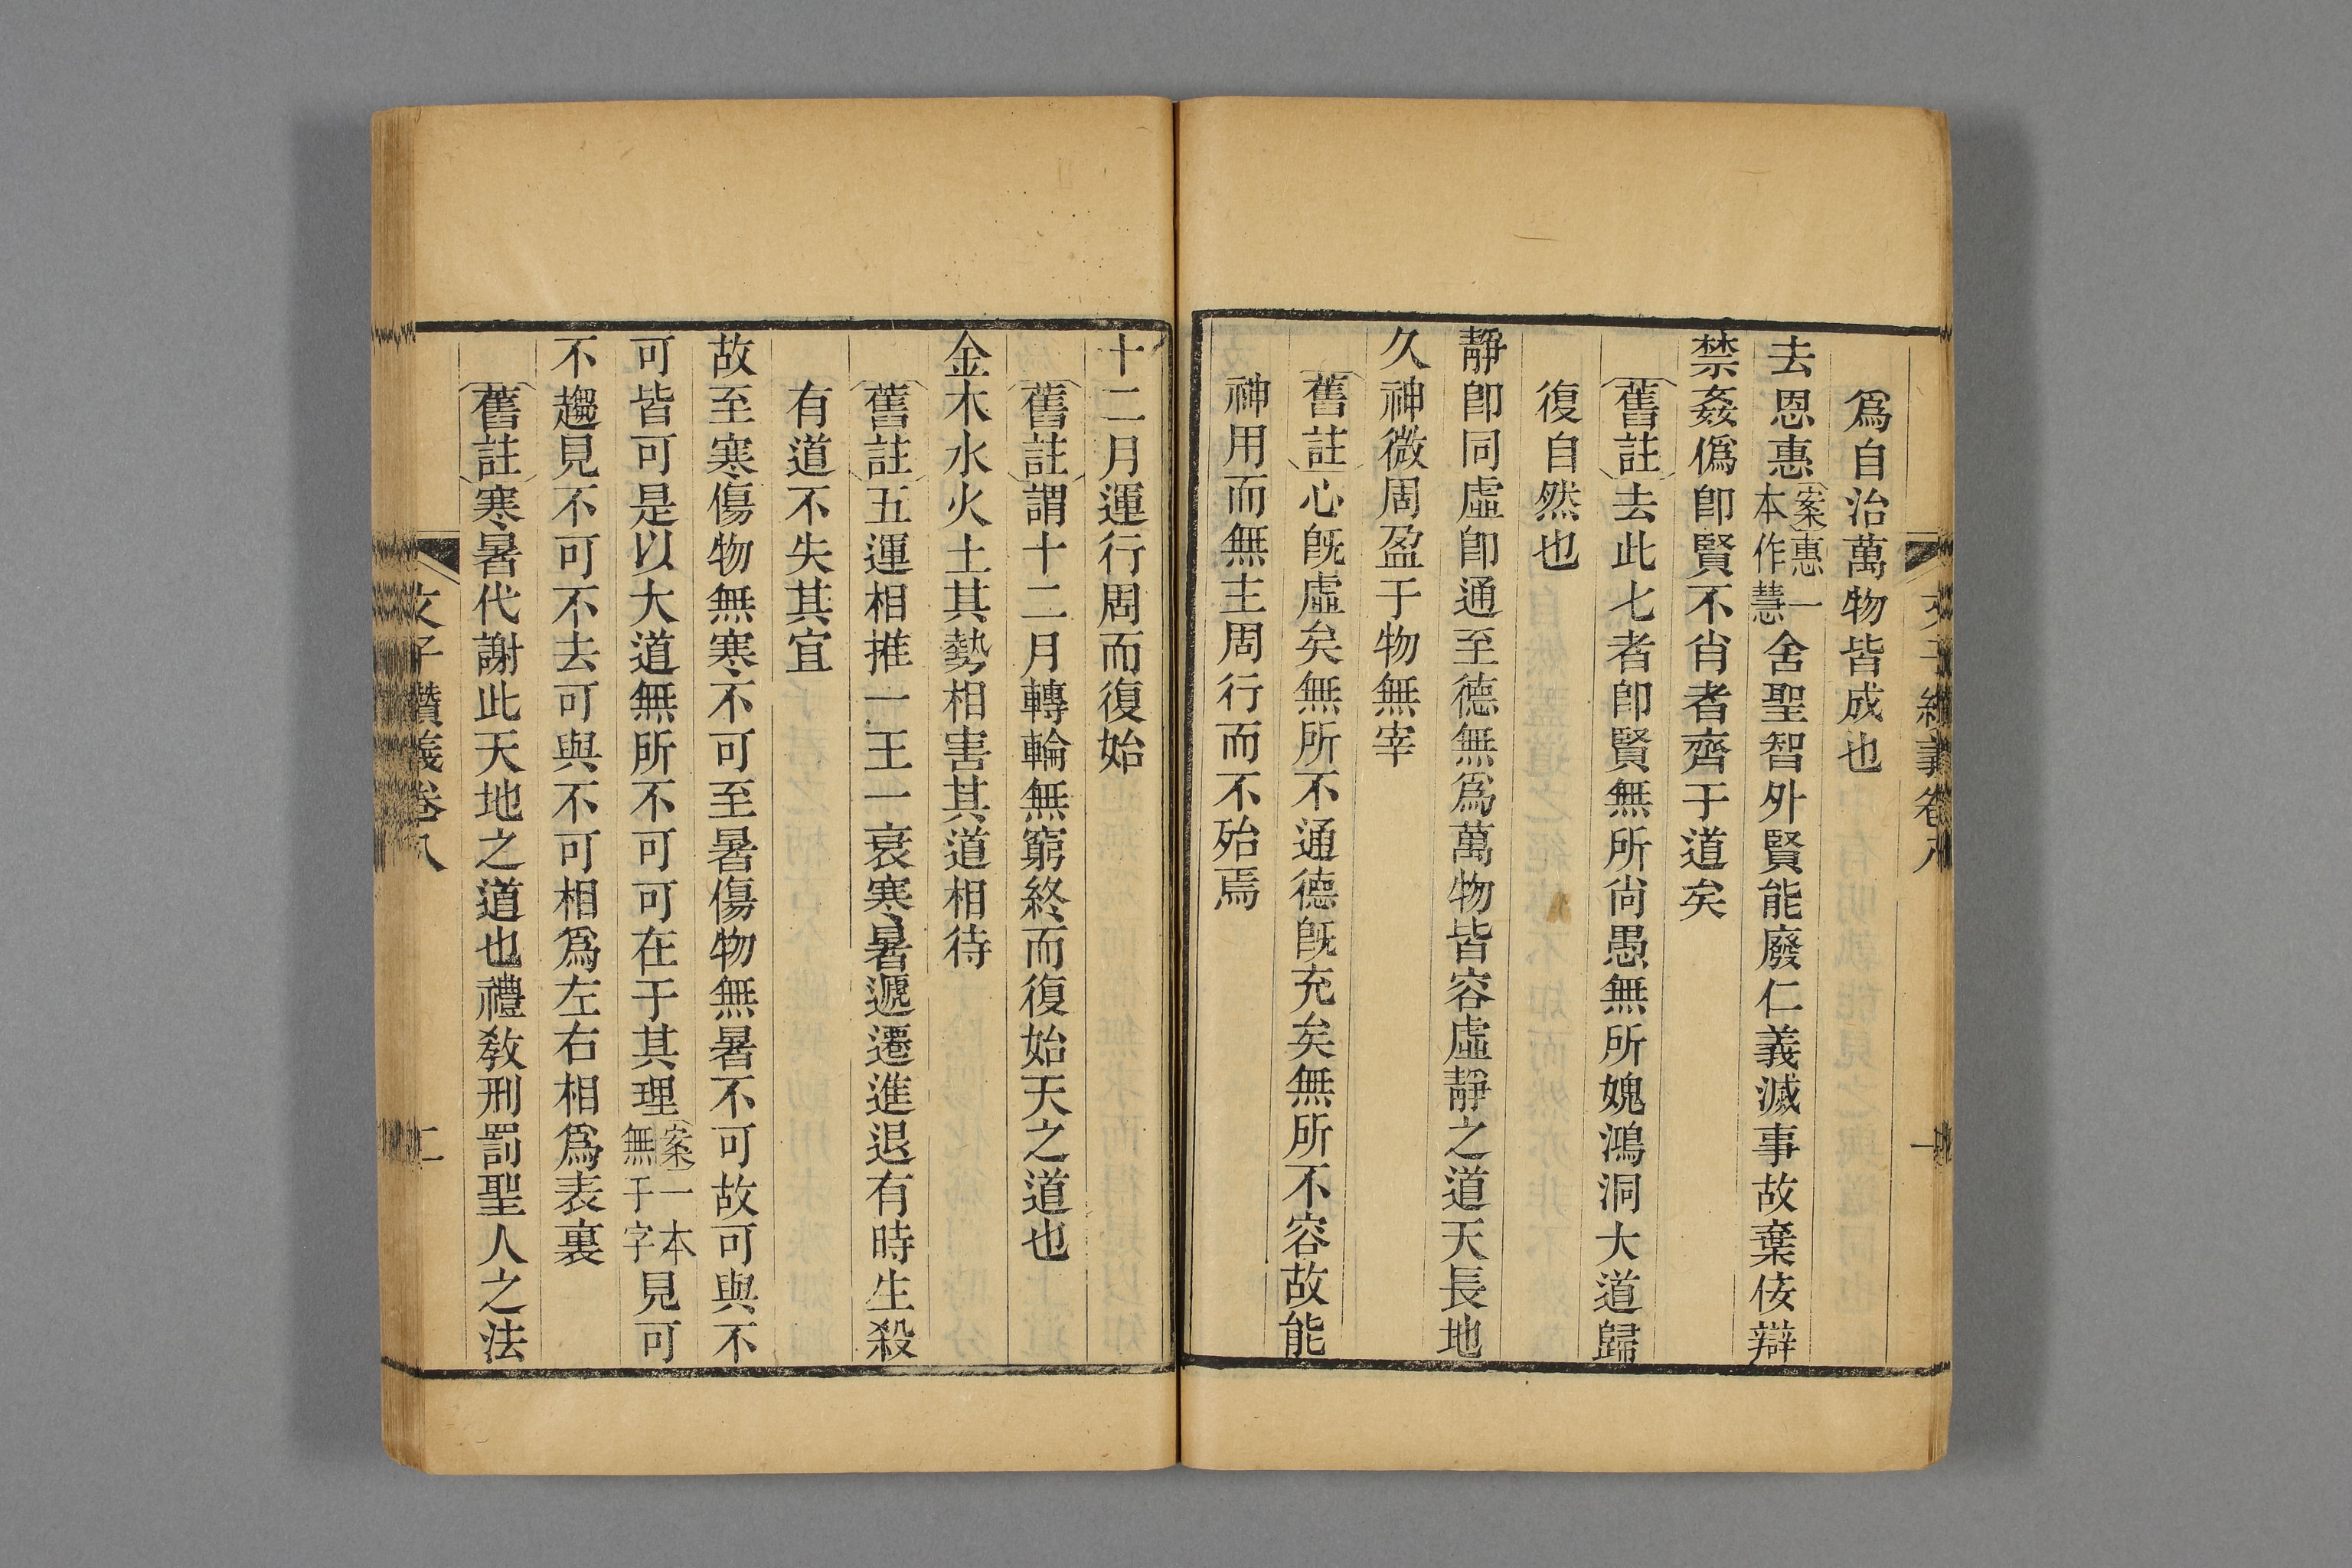 爲自治萬物皆成也
去恩惠案惠一本作慧舍聖智外賢能廢仁義滅事故棄佞辯
禁姦僞卽賢不肖者齊于道矣
舊註去此七者卽賢無所尙愚無所媿鴻洞大道歸
復自然也
靜卽同虛卽通至德無爲萬物皆容虛靜之道天長地
久神微周盈于物無宰
舊註心旣虛矣無所不通德旣充矣無所不容故能
神用而無主周行而不殆焉
十二月運行周而復始
舊註謂十二月轉輪無窮終而復始天之道也
金木水火土其勢相害其道相待
舊註五運相推一王一衰寒暑遞遷進退有時生殺
有道不失其宜
故至寒傷物無寒不可至暑傷物無暑不可故可與不
可皆可是以大道無所不可可在于其理案一本無于字見可
不趨見不可不去可與不可相爲左右相爲表裏
舊註寒暑代謝此天地之道也禮敎刑罰聖人之法
文子纘義卷八
二